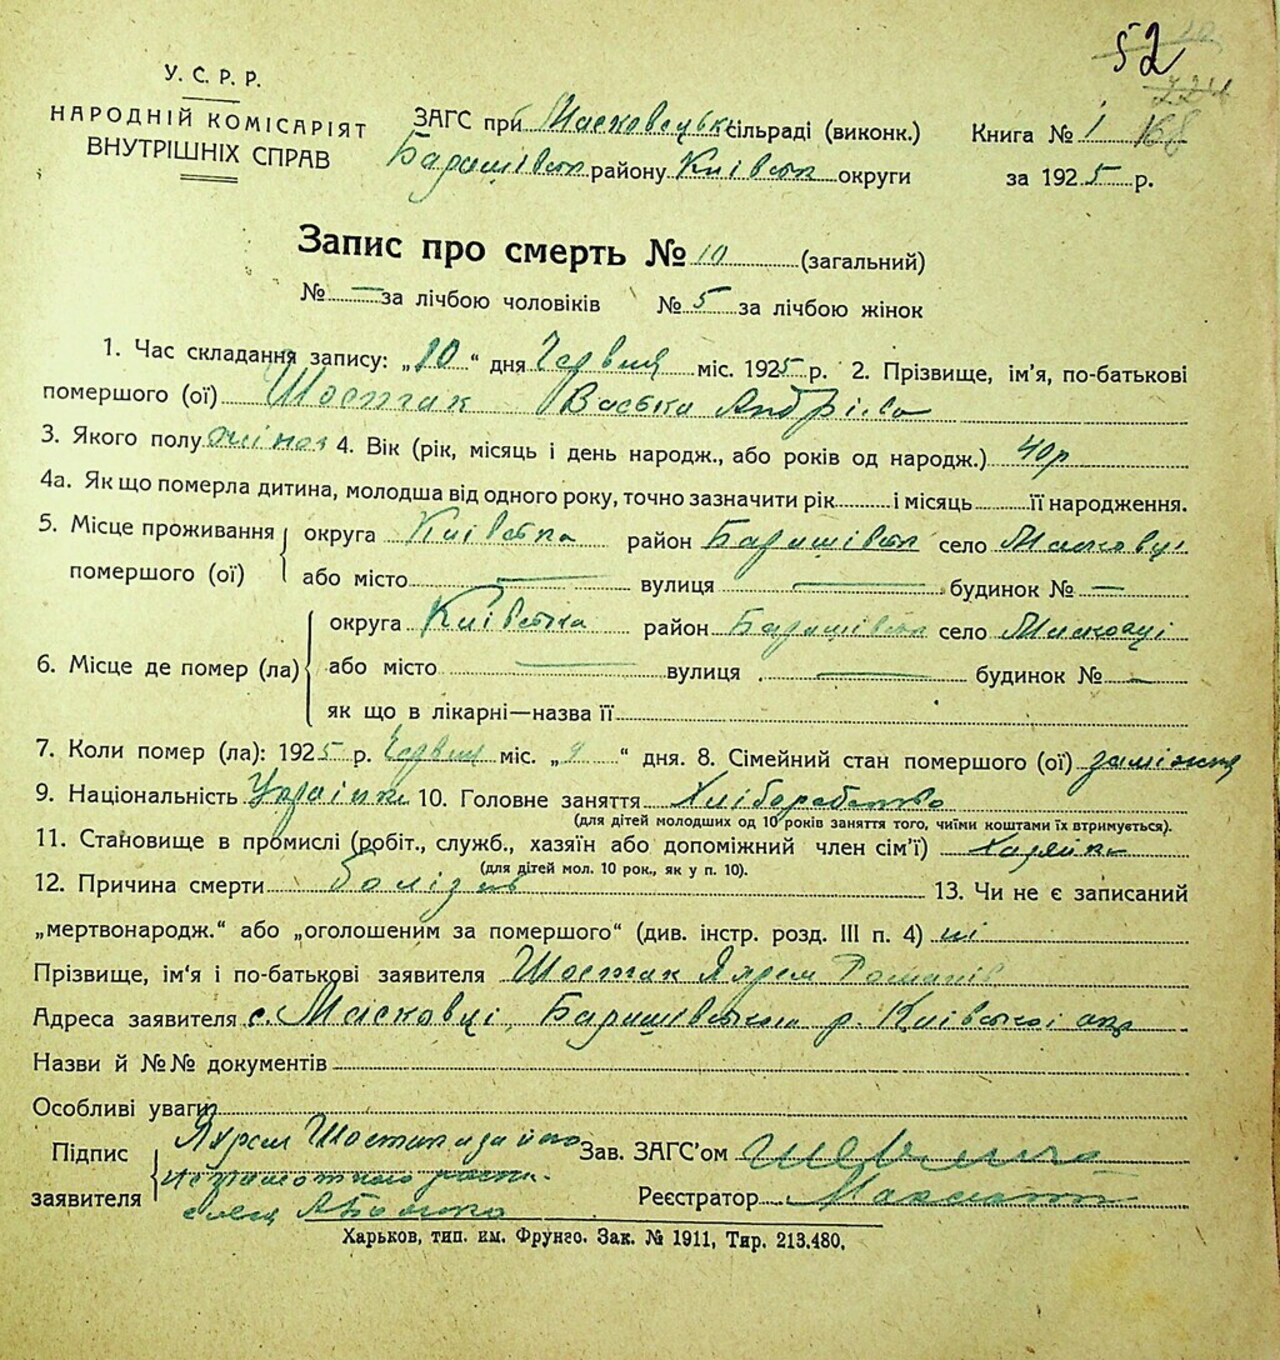 52
У. С. Р. Р.
НАРОДНІЙ КОМІСАРІЯТ
ВНУТРІШНІХ СПРАВ
ЗАГС при Масковецькі сільраді (виконк.)
Баришівськ району Київськ округи
Книга № 1
за 1925 р.
Запис про смерть № 10 (загальний)
№ — за лічбою чоловіків № 5 за лічбою жінок
1. Час складання запису: „10“ дня Червня міс. 1925 р. 2. Прізвище, ім'я, по-батькові
помершого (ої) Шостак Васька Андрієва
3. Якого полу жіноч 4. Вік (рік, місяць і день народж., або років од народж.) 40 р
4а. Як що померла дитина, молодша від одного року, точно зазначити рік і місяць її народження.
5. Місце проживання помершого (ої) округа Київська район Баришівськ село Масковці
або місто — вулиця — будинок № —
6. Місце де помер (ла) округа Київська район Баришівськ село Масковці
або місто — вулиця — будинок № —
як що в лікарні—назва її
7. Коли помер (ла): 1925 р. Червня міс. „9“ дня. 8. Сімейний стан помершого (ої) заміжня
9. Національність Українк 10. Головне заняття Хліборобство
(для дітей молодших од 10 років заняття того, чиїми коштами їх втримується).
11. Становище в промислі (робіт., служб., хазяїн або допоміжний член сім'ї) Хазяйка
(для дітей мол. 10 рок., як у п. 10).
12. Причина смерти 13. Чи не є записаний
„мертвонародж.“ або „оголошеним за помершого“ (див. інстр. розд. III п. 4) ні
Прізвище, ім'я і по-батькові заявителя Шостак Ярем Романів
Адреса заявителя с. Масковці, Баришівського р. Київської окр
Назви й №№ документів
Особливі уваги
Підпис заявителя Ярем Шостак а за його
неграмотного роспи-
Зав. ЗАГС'ом
Реєстратор
Харьков, тип. им. Фрунзе. Зак. № 1911, Тир. 213.480.